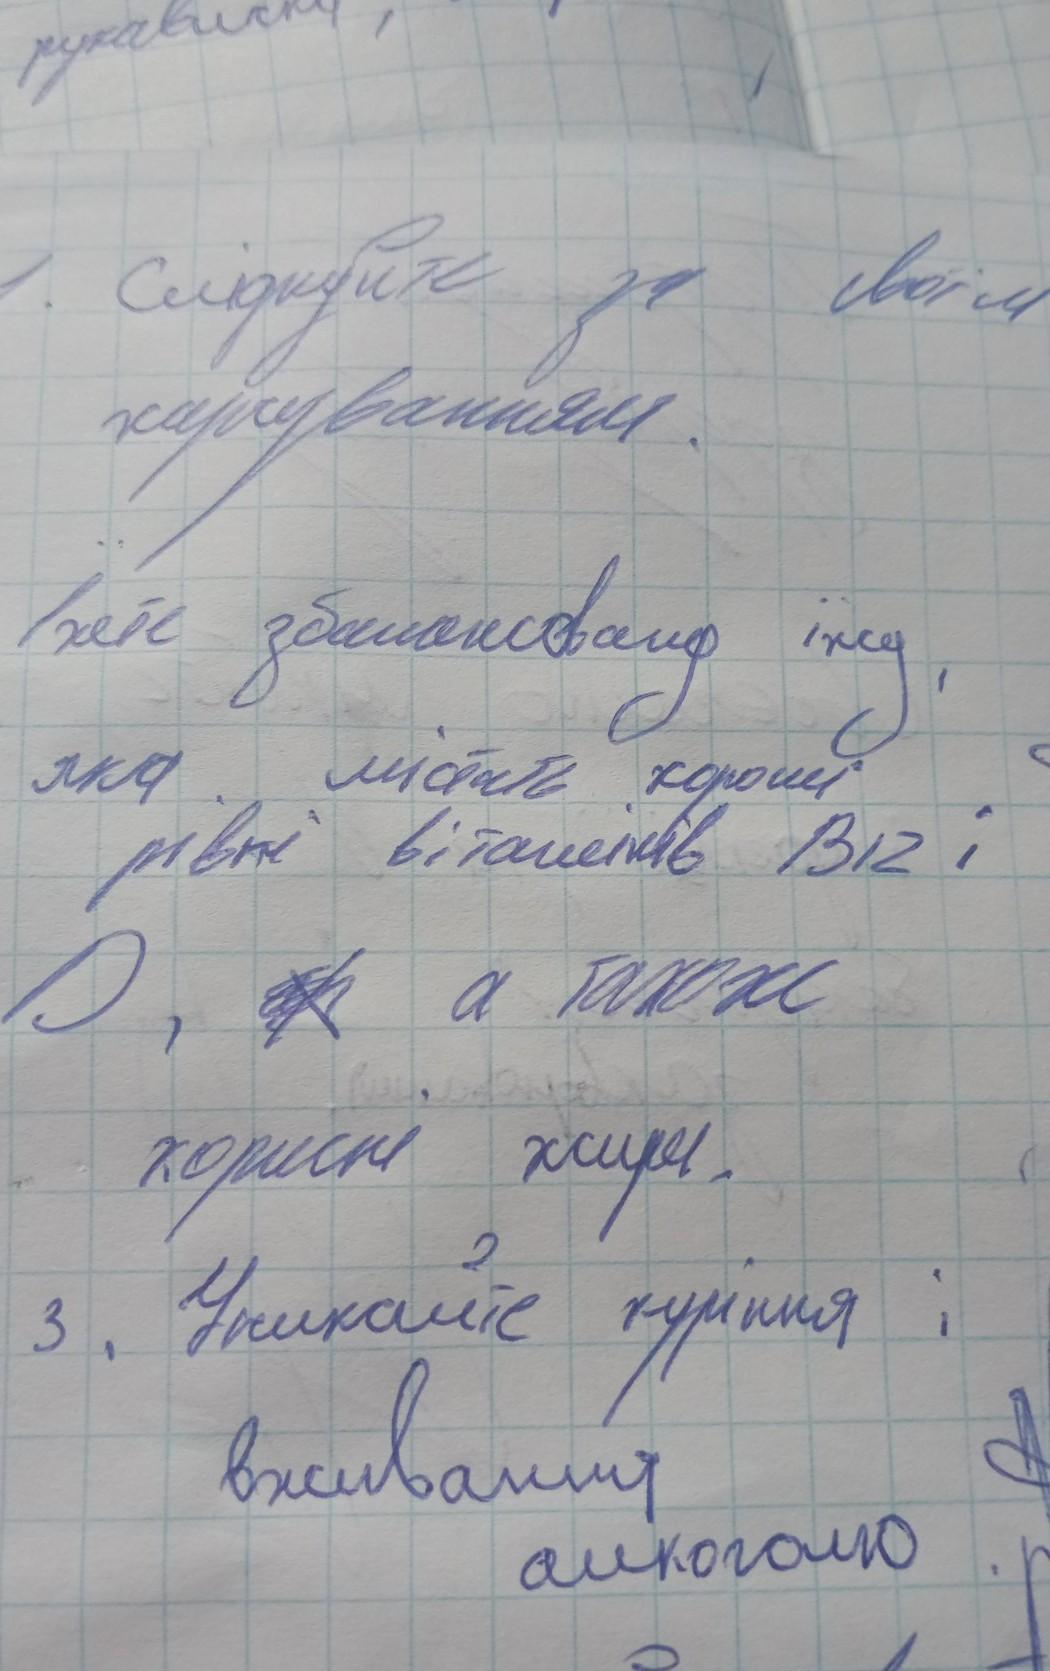 рукавички,
1. Слідкуйте за своїм
харчуванням.
Їжте збалансовану їжу,
яка містить хороші
рівні вітамінів B12 і
D, а також
корисні жири.
3. Уникайте куріння і
вживання
алкоголю